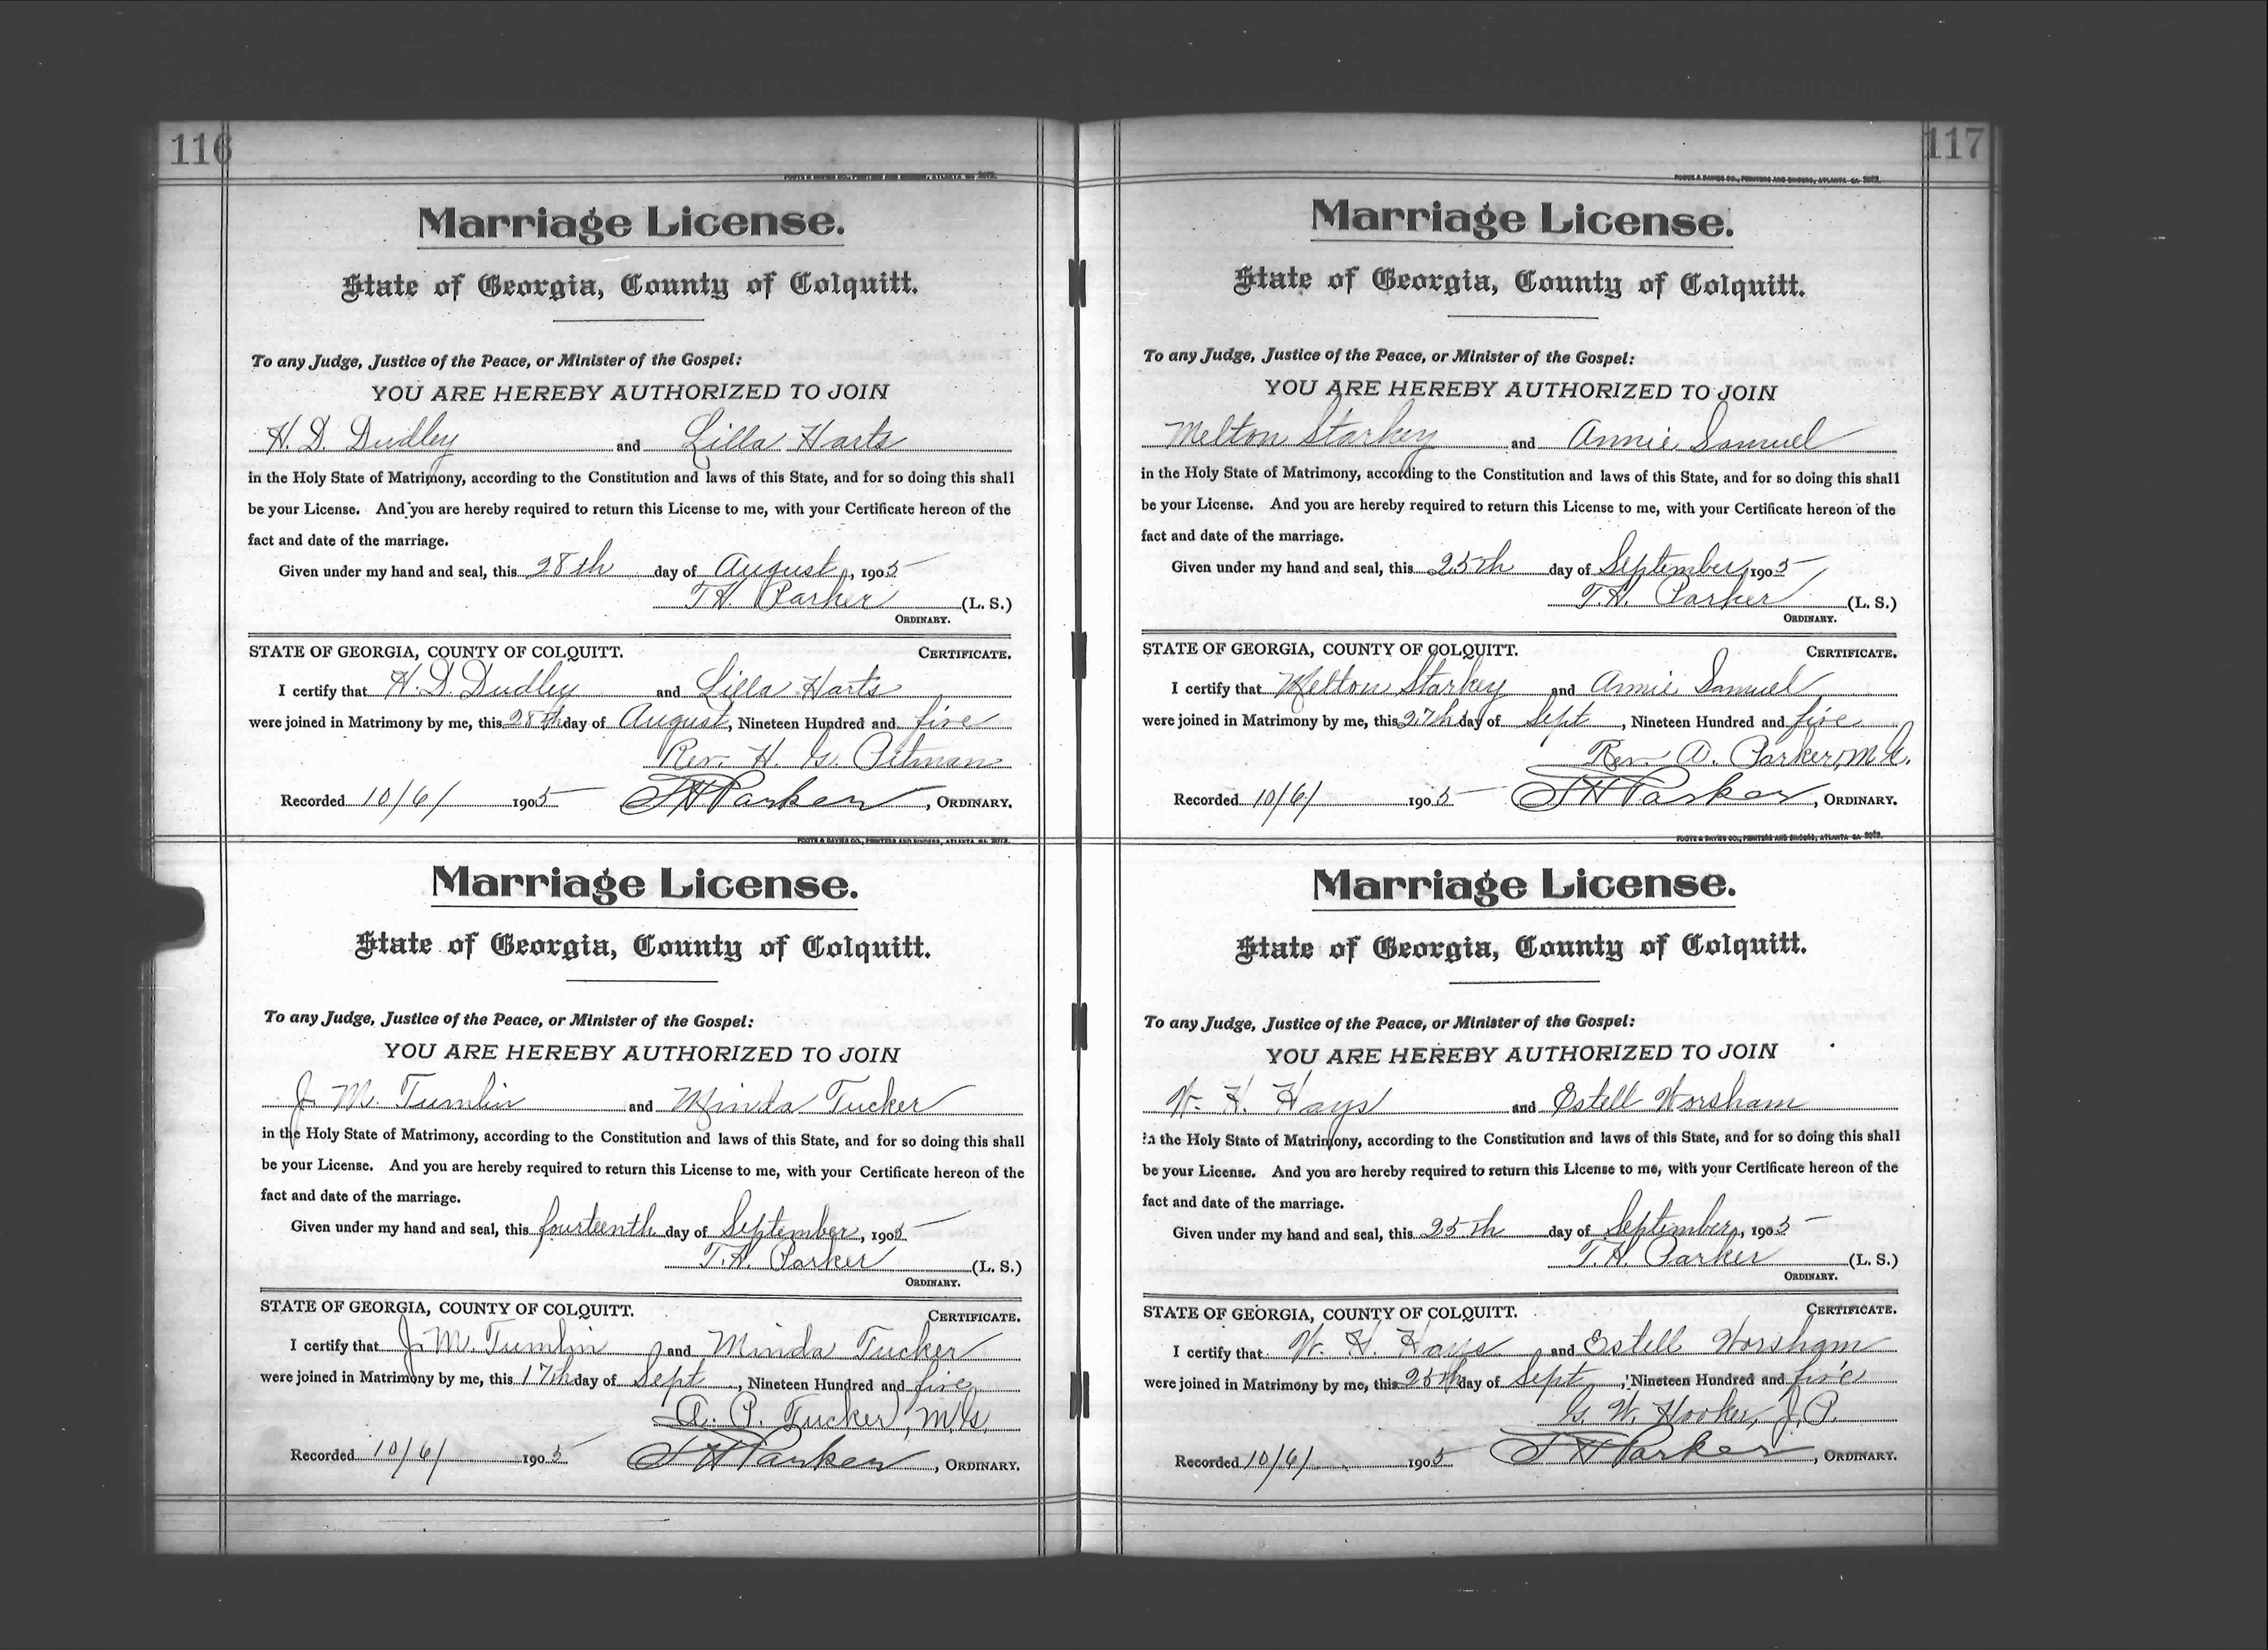 116
FOOTE & DAVIES CO., PRINTERS AND BINDERS, ATLANTA GA 2072.
Marriage License.
State of Georgia, County of Colquitt.
To any Judge, Justice of the Peace, or Minister of the Gospel:
YOU ARE HEREBY AUTHORIZED TO JOIN
H. D. Dudley and Lilla Harts
in the Holy State of Matrimony, according to the Constitution and laws of this State, and for so doing this shall
be your License. And you are hereby required to return this License to me, with your Certificate hereon of the
fact and date of the marriage.
Given under my hand and seal, this 28th day of August, 1905
T.H. Parker (L. S.)
ORDINARY.
STATE OF GEORGIA, COUNTY OF COLQUITT. CERTIFICATE.
I certify that H. D. Dudley and Lilla Harts
were joined in Matrimony by me, this 28th day of August, Nineteen Hundred and five
Rev. H. G. Pitman
Recorded 10/6/ 1905 T H Parker, ORDINARY.
FOOTE & DAVIES CO., PRINTERS AND BINDERS, ATLANTA GA 2072.
Marriage License.
State of Georgia, County of Colquitt.
To any Judge, Justice of the Peace, or Minister of the Gospel:
YOU ARE HEREBY AUTHORIZED TO JOIN
J. M. Tumlin and Minda Tucker
in the Holy State of Matrimony, according to the Constitution and laws of this State, and for so doing this shall
be your License. And you are hereby required to return this License to me, with your Certificate hereon of the
fact and date of the marriage.
Given under my hand and seal, this fourteenth day of September, 1905
T. H. Parker (L. S.)
ORDINARY.
STATE OF GEORGIA, COUNTY OF COLQUITT. CERTIFICATE.
I certify that J. M. Tumlin and Minda Tucker
were joined in Matrimony by me, this 17th day of Sept, Nineteen Hundred and five
A. P. Tucker, M.G.
Recorded 10/6/ 1905 T H Parker, ORDINARY.
117
FOOTE & DAVIES CO., PRINTERS AND BINDERS, ATLANTA GA 2072.
Marriage License.
State of Georgia, County of Colquitt.
To any Judge, Justice of the Peace, or Minister of the Gospel:
YOU ARE HEREBY AUTHORIZED TO JOIN
Melton Starkey and Annie Samuel
in the Holy State of Matrimony, according to the Constitution and laws of this State, and for so doing this shall
be your License. And you are hereby required to return this License to me, with your Certificate hereon of the
fact and date of the marriage.
Given under my hand and seal, this 25th day of September, 1905
T. H. Parker (L. S.)
ORDINARY.
STATE OF GEORGIA, COUNTY OF COLQUITT. CERTIFICATE.
I certify that Melton Starkey and Annie Samuel
were joined in Matrimony by me, this 27th day of Sept, Nineteen Hundred and five
Rev. A. Parker, M.G.
Recorded 10/6/ 1905 T H Parker, ORDINARY.
FOOTE & DAVIES CO., PRINTERS AND BINDERS, ATLANTA GA 2072.
Marriage License.
State of Georgia, County of Colquitt.
To any Judge, Justice of the Peace, or Minister of the Gospel:
YOU ARE HEREBY AUTHORIZED TO JOIN
W. H. Hays and Estell Worsham
in the Holy State of Matrimony, according to the Constitution and laws of this State, and for so doing this shall
be your License. And you are hereby required to return this License to me, with your Certificate hereon of the
fact and date of the marriage.
Given under my hand and seal, this 25th day of September, 1905
T. H. Parker (L. S.)
ORDINARY.
STATE OF GEORGIA, COUNTY OF COLQUITT. CERTIFICATE.
I certify that W. H. Hays and Estell Worsham
were joined in Matrimony by me, this 25th day of Sept, Nineteen Hundred and five
G. W. Hooker, J.P.
Recorded 10/6/ 1905 T H Parker, ORDINARY.